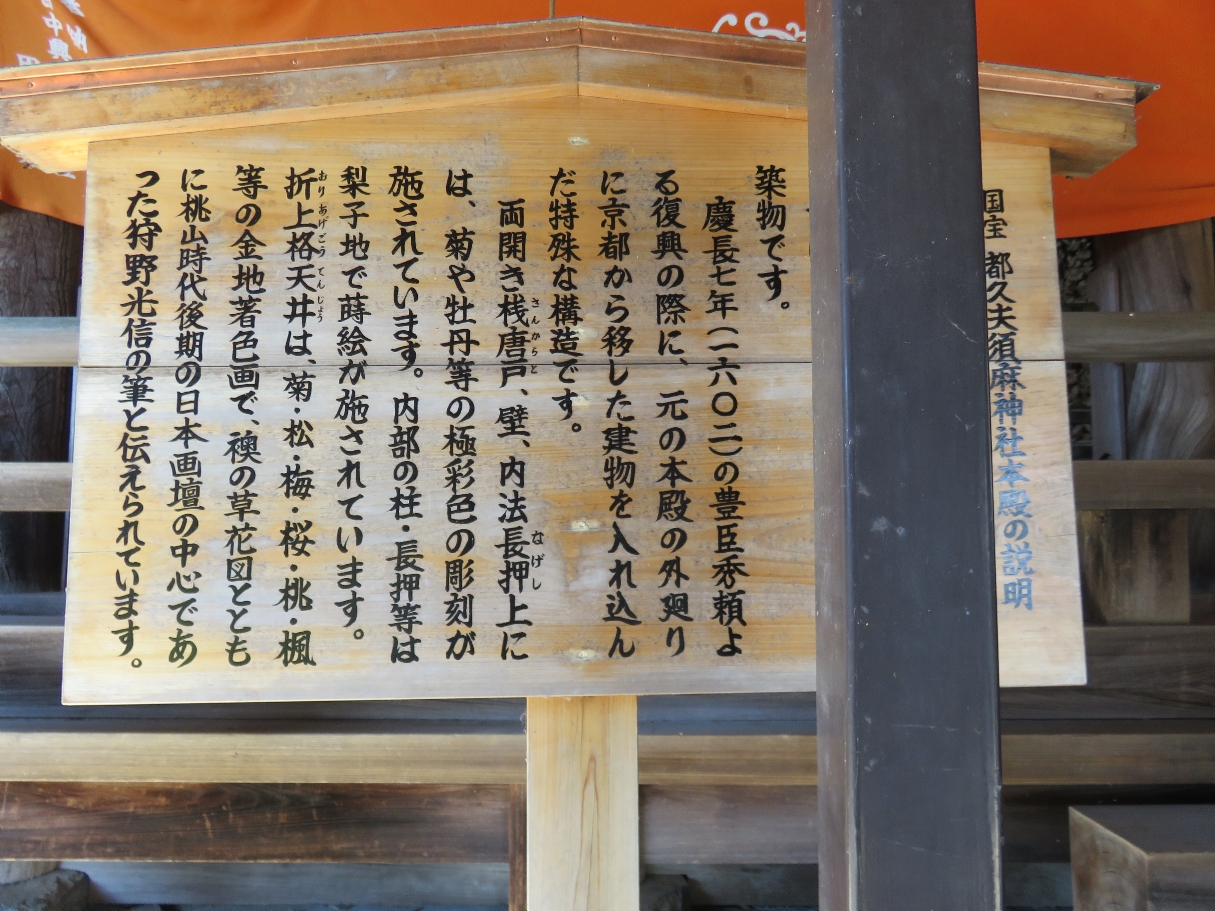 国宝 都久夫須麻神社本殿の説明
築物です。
慶長七年(一六〇二)の豊臣秀頼よ
る復興の際に、元の本殿の外廻り
に京都から移した建物を入れ込ん
だ特殊な構造です。
両開き桟唐戸、壁、内法長押上に
さんからと
なげし
は、菊や牡丹等の極彩色の彫刻が
施されています。内部の柱・長押等は
梨子地で蒔絵が施されています。
折上格天井は、菊・松・梅・桜・桃・楓
おりあげごうてんじょう
等の金地著色画で、襖の草花図ととも
に桃山時代後期の日本画壇の中心であ
った狩野光信の筆と伝えられています。
中興